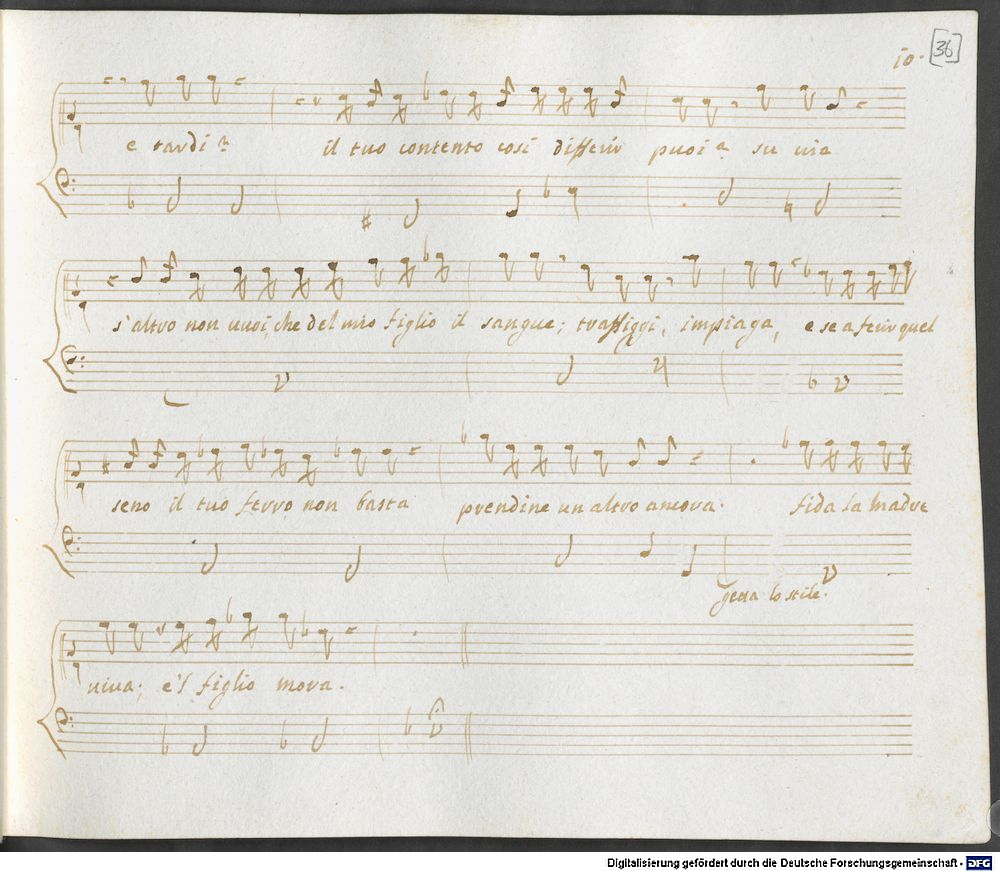 10. [36]
e tardi? il tuo contento così differir puoi? su via
s'altro non vuoi, che del mio figlio il sangue; traffiggi, impiaga, e se a ferir quel
seno il tuo ferro non basta prendine un altro ancora. fida la madre
getta lo stile.
viva; e'l figlio mora.
Digitalisierung gefördert durch die Deutsche Forschungsgemeinschaft - DFG